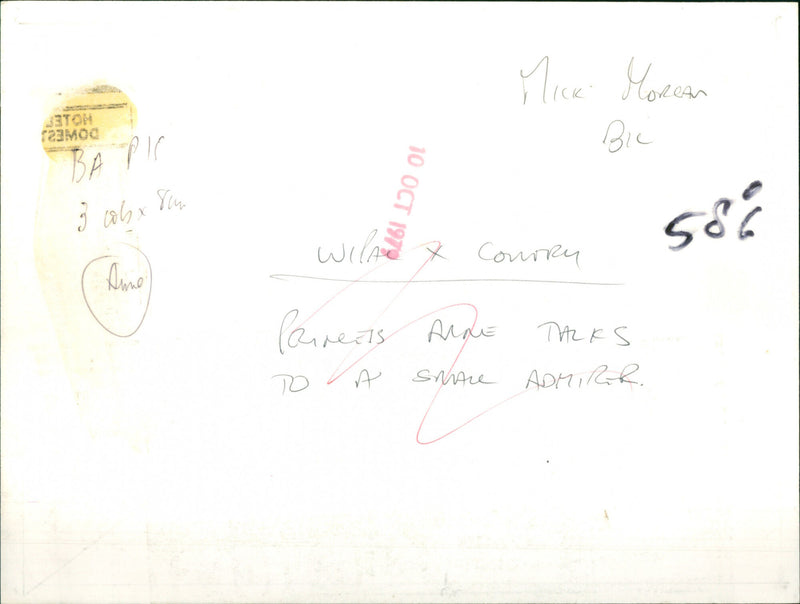 MICK MORGAN
BIC
HOTEL
DOMEST
BA PIC
3 cols x 8cm
Anne
10 OCT 197
586
X COUNTRY
PRINCESS ANNE TALKS
TO A SMALL ADMIRER.